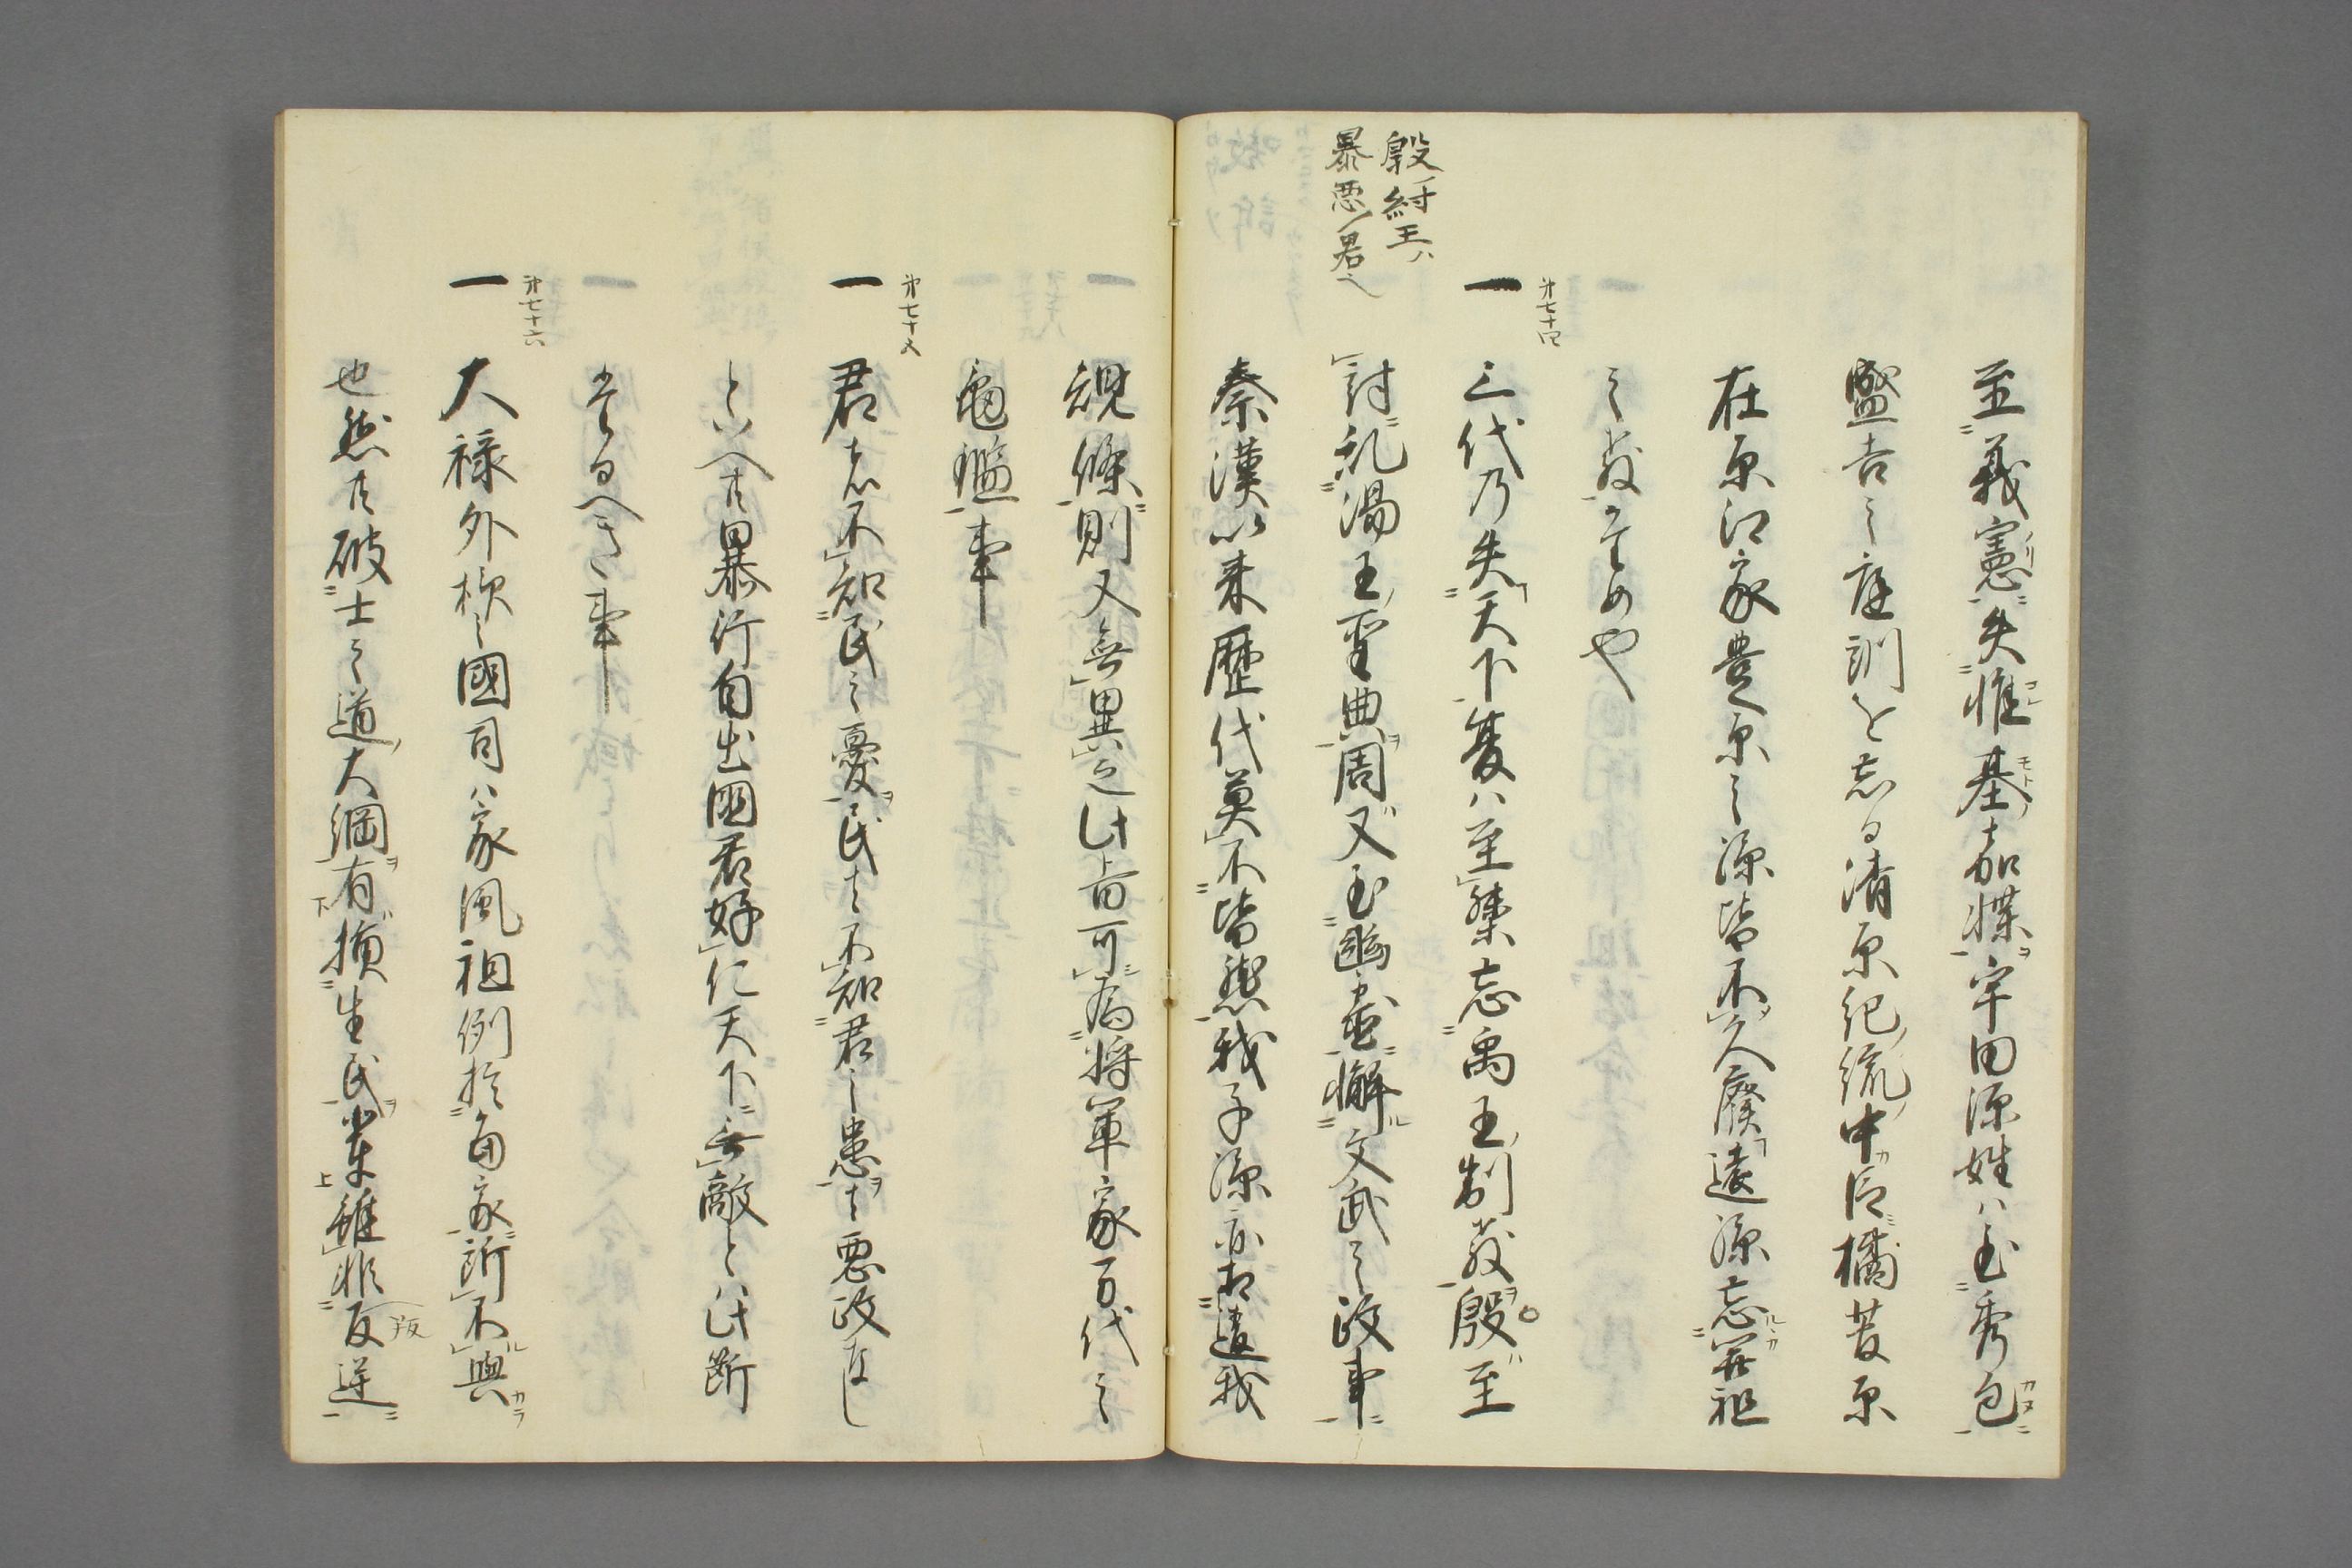 至義憲失惟基嘉蝶宇田源姓ハ至秀包
盛吉之庭訓を忘る清原紀流中臣橘菅原
在原江家豊原之源皆不久廃遠源忘Ⅱ祖
之教そめや
第七十四
一 三代乃失天下夏ハ至桀忘禹王制教殷至
殷紂王ハ
暴悪ノ君也
討乱湯王聖典周又至幽虚懈文武之政事
秦漢以来歴代莫不皆然我子源亦相遠我
規條則又無異之此旨可為将軍家万代之
亀鑑事
第七十五
一 君者不知民之憂民者不知君之患者悪政なし
といへ共暴行自出国君好仁天下無敵とハ此断
そるへき事
第七十六
一 大禄外様之國司ハ家風祖例於当家所不與
也然共破士之道大綱有損生民業雖非反逆